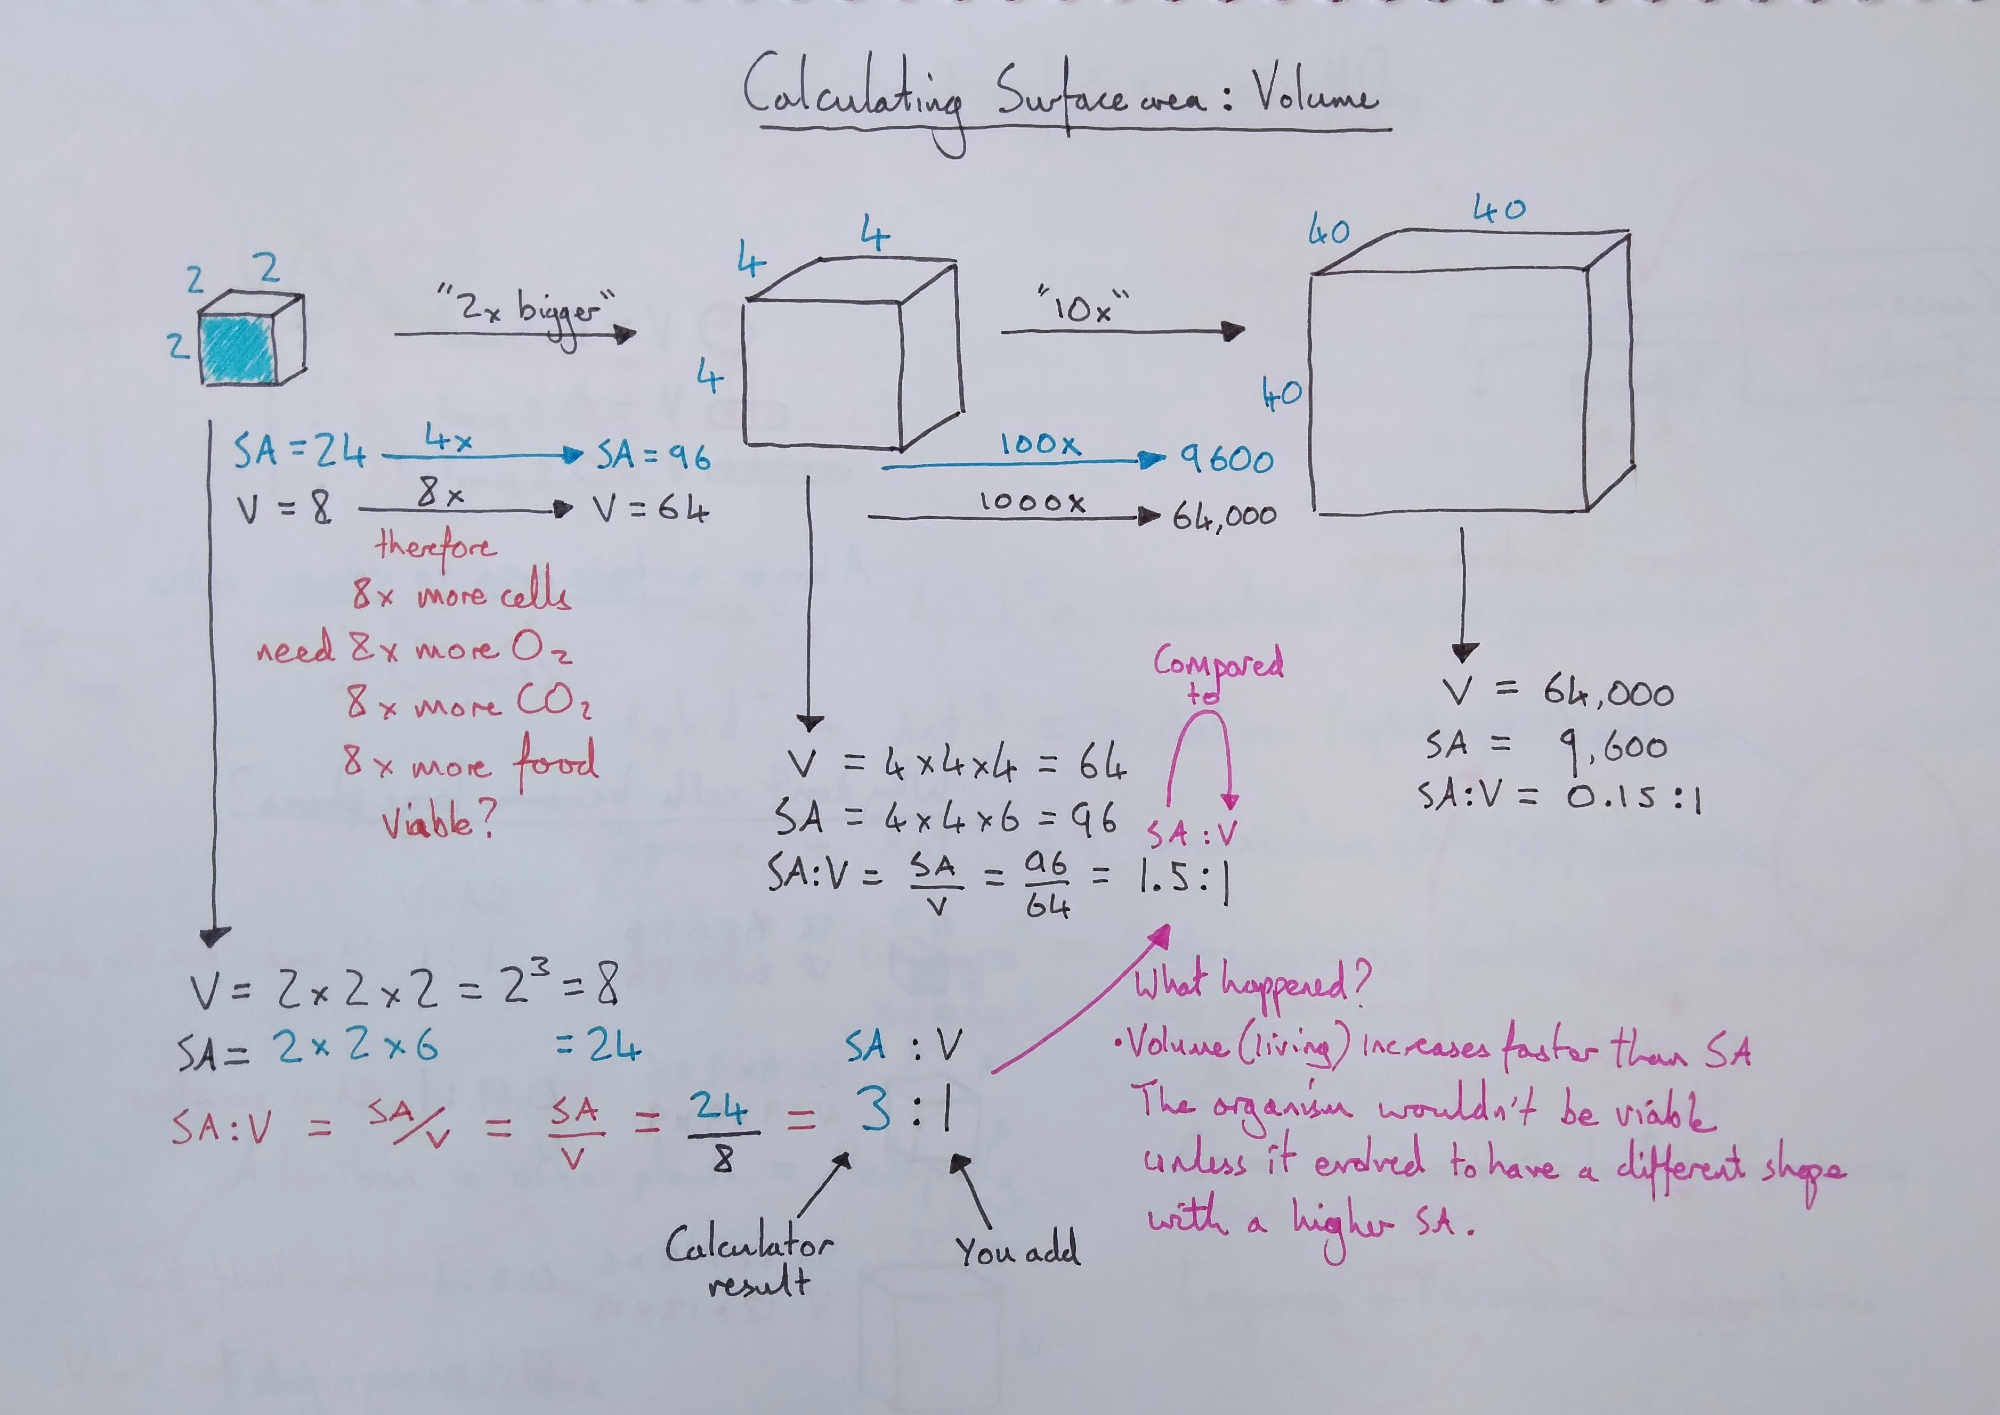 Calculating Surface area : Volume
2 2
2
"2x bigger"
4 4
4
"10x"
40 40
40
SA = 24 4x SA = 96
V = 8 8x V = 64
100x 9600
1000x 64,000
therefore
8x more cells
need 8x more O2
8x more CO2
8x more food
Viable?
V = 2 x 2 x 2 = 2³ = 8
SA = 2 x 2 x 6 = 24
SA:V = SA/V = SA/V = 24/8 = 3 : 1
SA : V
Calculator
result
You add
V = 4 x 4 x 4 = 64
SA = 4 x 4 x 6 = 96
SA:V = SA/V = 96/64 = 1.5 : 1
Compared
to
SA : V
V = 64,000
SA = 9,600
SA:V = 0.15 : 1
What happened?
• Volume (living) increases faster than SA
The organism wouldn't be viable
unless it evolved to have a different shape
with a higher SA.